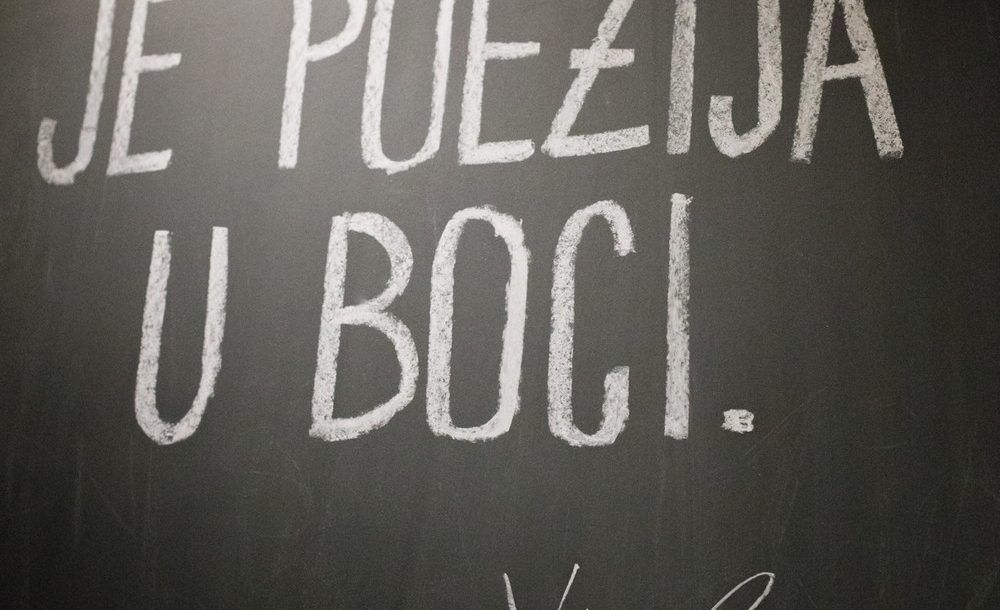 JE POEZIJA
U BOCI.